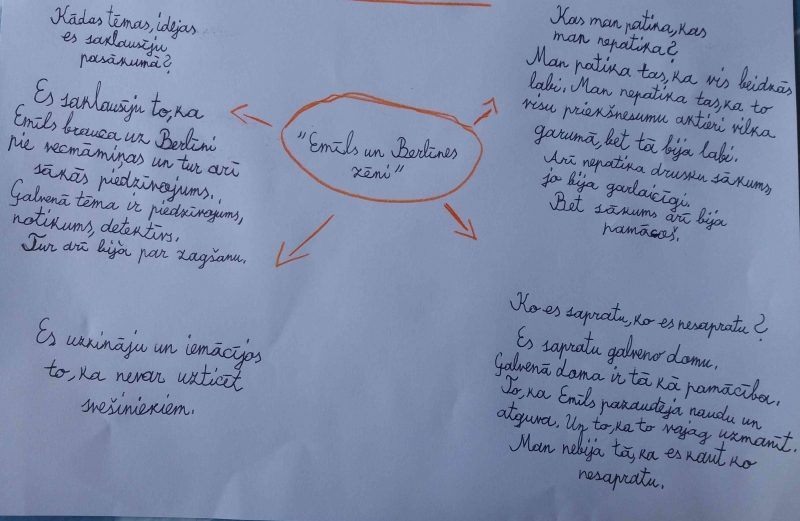 Kādas tēmas, idejas
es saklausīju
pasākumā?
Es saklausīju to, ka
Emīls brauca uz Berlīni
pie vecmāmiņas un tur arī
sākās piedzīvojums.
Galvenā tēma ir piedzīvojums,
notikums, detektīvs.
Tur arī bija par zagšanu.
"Emīls un Berlīnes
zēni"
Kas man patika, kas
man nepatika?
Man patika tas, ka vis beidzās
labi. Man nepatika tas, ka to
visu priekšnesumu aktieri vilka
garumā, bet tā bija labi.
Arī nepatika drusku sākums,
jo bija garlaicīgi.
Bet sākums arī bija
pamācošs.
Es uzzināju un iemācījos
to, ka nevar uzticēt
svešiniekiem.
Ko es sapratu, ko es nesapratu?
Es sapratu galveno domu.
Galvenā doma ir tā kā pamācība.
To, ka Emīls pazaudēja naudu un
atguva. Un to, ka to vajag uzmanīt.
Man nebija tā, ka es kaut ko
nesapratu.